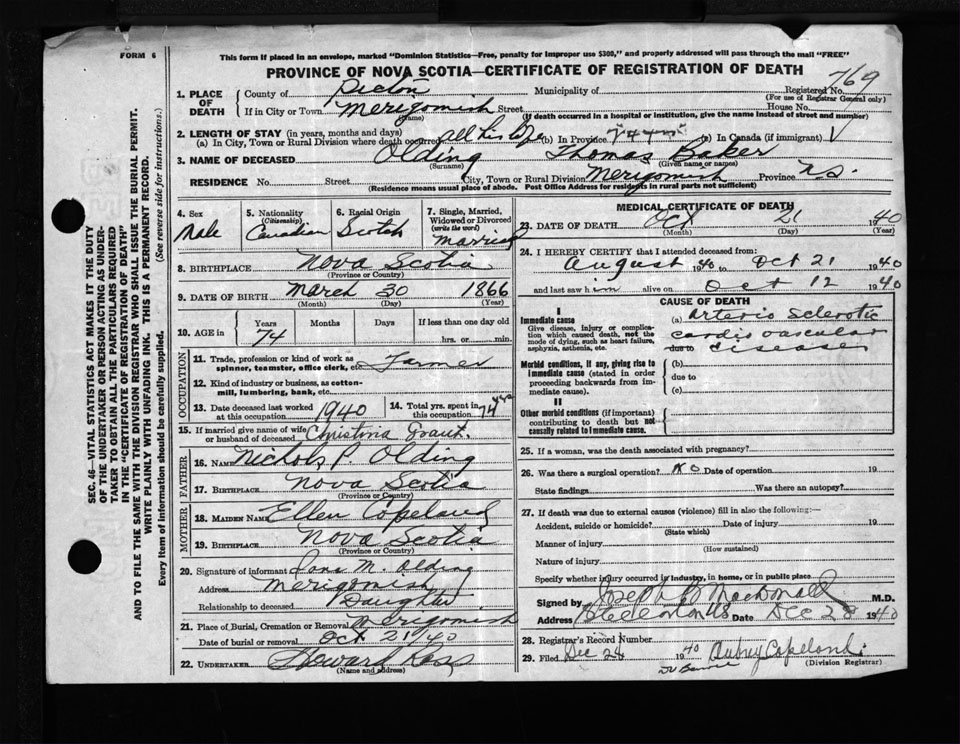 FORM 6
This form if placed in an envelope, marked "Dominion Statistics—Free, penalty for improper use $300," and properly addressed will pass through the mail "FREE"
PROVINCE OF NOVA SCOTIA—CERTIFICATE OF REGISTRATION OF DEATH
769
1. PLACE OF DEATH
County of Pictou Municipality of Registered No.
(For use of Registrar General only)
If in City or Town Merigomish Street House No.
(Name) (If death occurred in a hospital or institution, give the name instead of street and number)
2. LENGTH OF STAY (in years, months and days)
(a) In City, Town or Rural Division where death occurred all his life (b) In Province 74 (c) In Canada (if immigrant)
3. NAME OF DECEASED Olding Thomas Baker
(Surname) (Given name or names)
RESIDENCE No. Street City, Town or Rural Division Merigomish Province N.S.
(Residence means usual place of abode. Post Office Address for residents in rural parts not sufficient)
4. Sex Male
5. Nationality (Citizenship) Canadian
6. Racial Origin Scotch
7. Single, Married, Widowed or Divorced (write the word) Married
8. BIRTHPLACE Nova Scotia
(Province or Country)
9. DATE OF BIRTH March 30 1866
(Month) (Day) (Year)
10. AGE in Years Months Days If less than one day old
74 hrs. or min.
OCCUPATION
11. Trade, profession or kind of work as spinner, teamster, office clerk, etc. Farmer
12. Kind of industry or business, as cotton-mill, lumbering, bank, etc.
13. Date deceased last worked at this occupation 1940
14. Total yrs. spent in this occupation 74 yrs
15. If married give name of wife or husband of deceased Christina Grant.
FATHER
16. NAME P. Olding
17. BIRTHPLACE Nova Scotia
(Province or Country)
MOTHER
18. MAIDEN NAME Ellen Copeland
19. BIRTHPLACE Nova Scotia
(Province or Country)
20. Signature of informant M. Olding
Address Merigomish
Relationship to deceased Daughter
21. Place of Burial, Cremation or Removal Merigomish
Date of burial or removal Oct 21/40
22. UNDERTAKER Howard Ross
(Name and address)
MEDICAL CERTIFICATE OF DEATH
23. DATE OF DEATH Oct 21 1940
(Month) (Day) (Year)
24. I HEREBY CERTIFY that I attended deceased from:
August 1940 to Oct 21 1940
and last saw him alive on Oct 12 1940
CAUSE OF DEATH
I
Immediate cause
Give disease, injury or complication which caused death, not the mode of dying, such as heart failure, asphyxia, asthenia, etc.
(a) Arterio sclerotic
cardio vascular
due to disease
Morbid conditions, if any, giving rise to immediate cause (stated in order proceeding backwards from immediate cause).
(b)
due to
(c)
II
Other morbid conditions (if important) contributing to death but not causally related to immediate cause.
25. If a woman, was the death associated with pregnancy?
26. Was there a surgical operation? No Date of operation 19
State findings Was there an autopsy?
27. If death was due to external causes (violence) fill in also the following:—
Accident, suicide or homicide? Date of injury 19
(State which)
Manner of injury
(How sustained)
Nature of injury
Specify whether injury occurred in industry, in home, or in public place.
Signed by Joseph B MacDonald M.D.
Address Stellarton NS Date Dec 28 1940
28. Registrar's Record Number
29. Filed Dec 28 1940 Aubrey Copeland
(Division Registrar)
SEC. 46—VITAL STATISTICS ACT MAKES IT THE DUTY
OF THE UNDERTAKER OR PERSON ACTING AS UNDER-
TAKER TO OBTAIN ALL THE PARTICULARS REQUIRED
IN THE "CERTIFICATE OF REGISTRATION OF DEATH"
AND TO FILE THE SAME WITH THE DIVISION REGISTRAR WHO SHALL ISSUE THE BURIAL PERMIT.
WRITE PLAINLY WITH UNFADING INK. THIS IS A PERMANENT RECORD.
Every item of information should be carefully supplied. (See reverse side for instructions.)